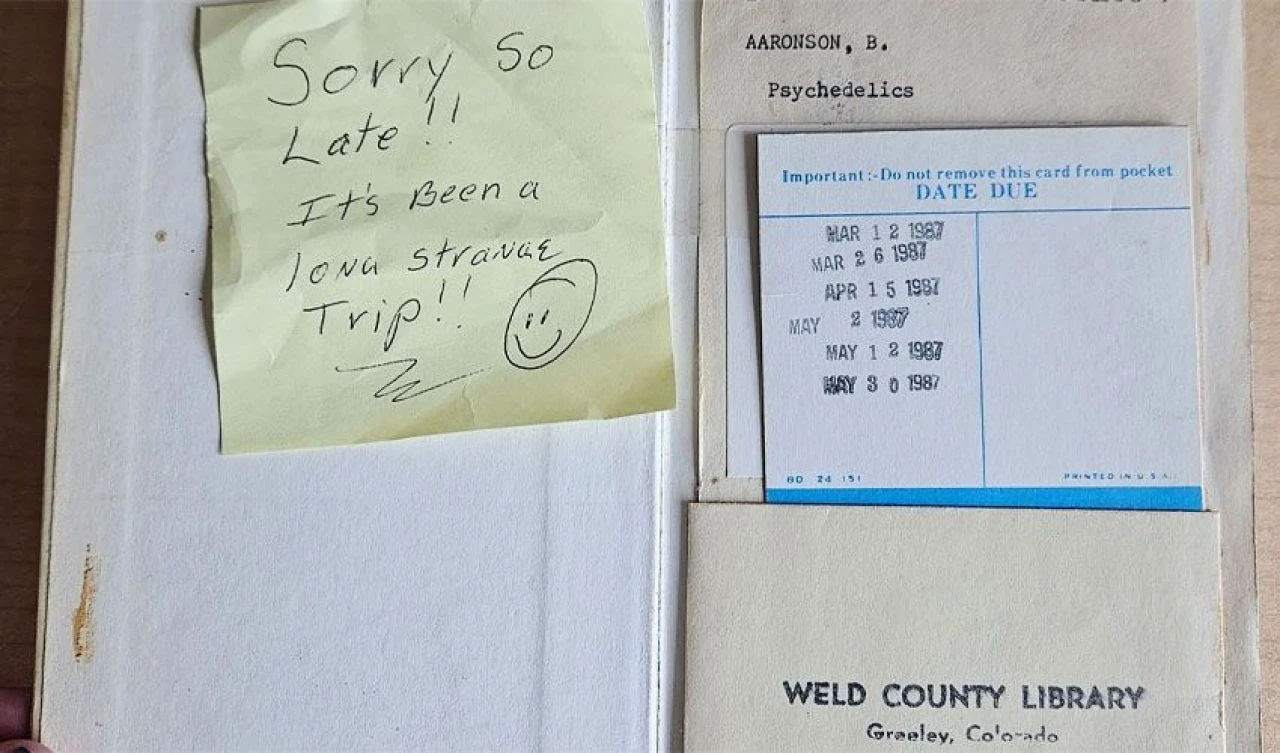 Sorry So
Late!!
It's Been a
long strange
Trip!!
AARONSON, B.
Psychedelics
Important:-Do not remove this card from pocket
DATE DUE
MAR 12 1987
MAR 26 1987
APR 15 1987
MAY 2 1987
MAY 12 1987
MAY 30 1987
BD 24 151
PRINTED IN U.S.A.
WELD COUNTY LIBRARY
Greeley, Colorado